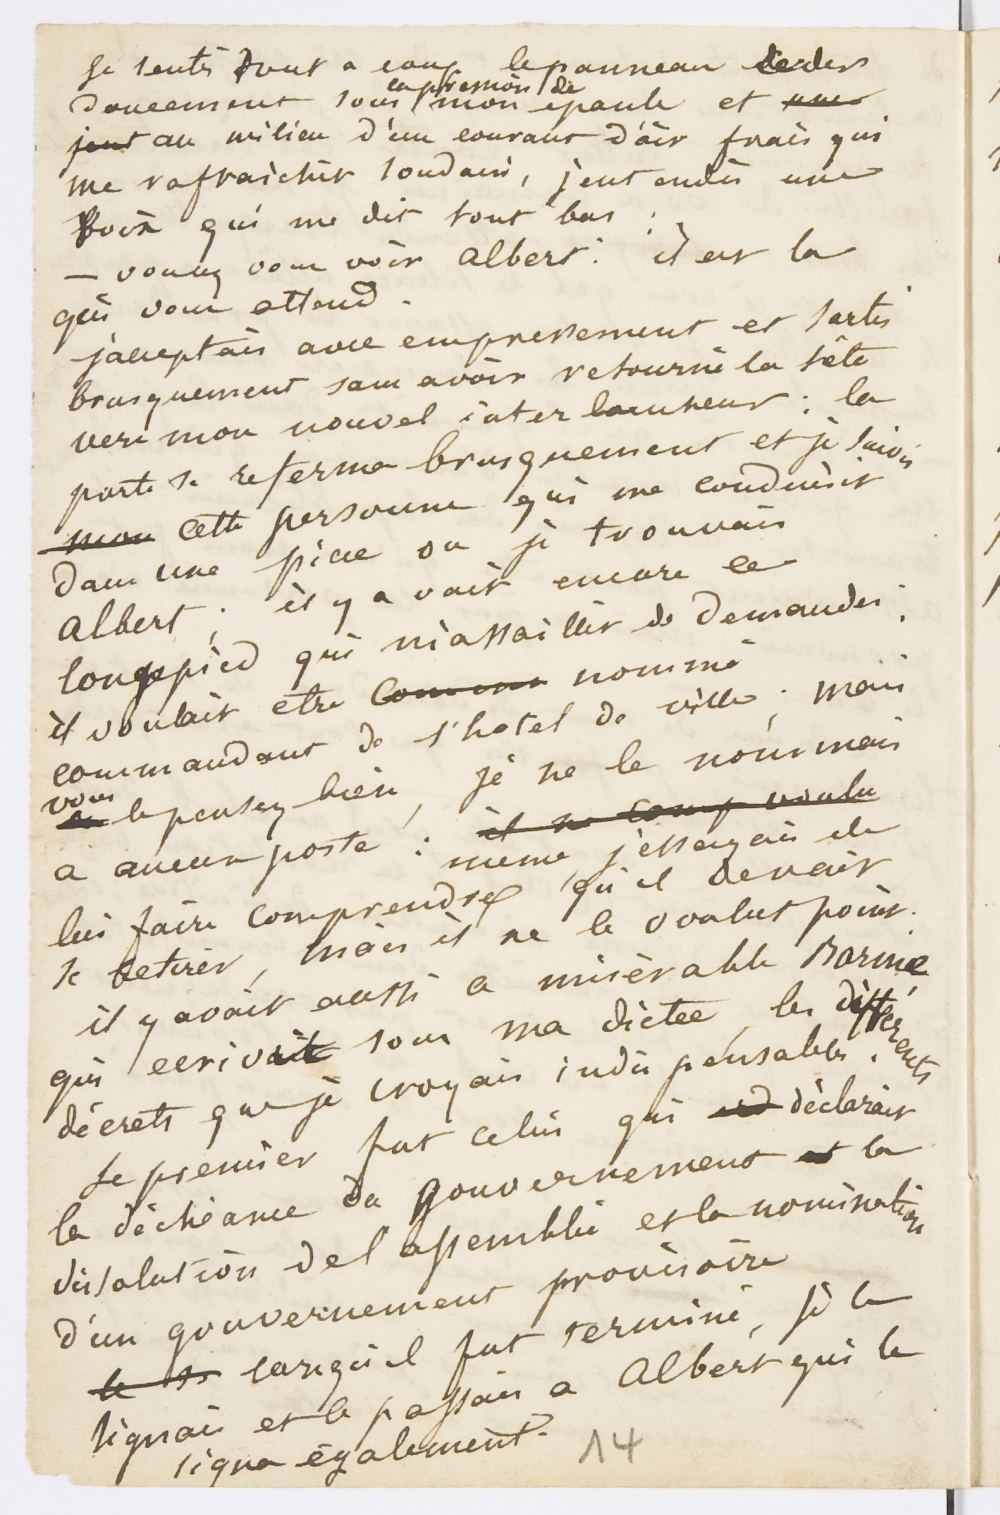 je sentis tout a coup le panneau ceder
doucement sous la pression de mon epaule et une
jent au milieu d'un courant d'air frais qui
me rafraichit soudain, j'entendis une
voix qui me dit tout bas :
— voulez vous voir Albert : il est la
qui vous attend.
j'acceptais avec empressement et sortis
brusquement sans avoir retourné la tête
vers mon nouvel interlocuteur : la
porte se referma brusquement et je suivis
mon cette personne qui me conduisit
dans une pièce ou je trouvais
Albert ; il y avait encore ce
longepied qui m'assaillit de demandes ;
il voulait etre comm nommé
commandant de l'hotel de ville ; mais
vous le pensez bien, je ne le nommais
a aucun poste : il ne comp voulu
meme j'essayais de
lui faire comprendre qu'il devait
se retirer, mais il ne le voulut point.
il y avait aussi ce misérable Borme
qui ecrivait sous ma dictee, les différents
décrets que je croyais indispensables.
Le premier fut celui qui déclarait
la déchéance du gouvernement et la
dissolution de l'assemblée et la nomination
d'un gouvernement provisoire
lorsqu'il fut terminé, je le
signais et le passais a Albert qui le
signa également.
14